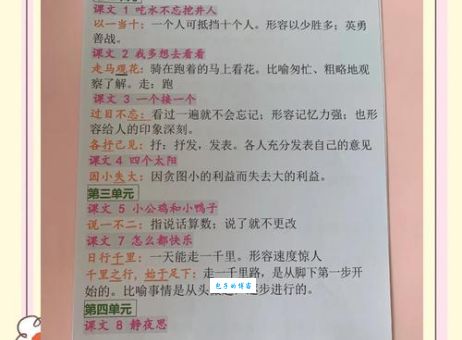 课文 1 吃水不忘挖井人
以一当十：一个人可抵挡十个人。形容以少胜多；英勇
善战。
课文 2 我多想去看看
走马观花：骑在跑着的马上看花。比喻匆忙、粗略地观
察了解。走：跑
课文 3 一个接一个
过目不忘：看过一遍就不会忘记；形容记忆力强；也形
容给人的印象深刻。
各抒己见：抒：抒发，发表。各人充分发表自己的意见
课文 4 四个太阳
因小失大：因贪图小的利益而失去大的利益。
第三单元
课文 5 小公鸡和小鸭子
说一不二：指说话算数；说了就不更改
课文 7 怎么都快乐
日行千里：一天能走一千里。形容速度惊人
千里之行，始于足下：走一千里路，是从脚下第一步开
始的。比喻事情是从头 步进行的。
包子的博客
第四单元
课文 8 静夜思